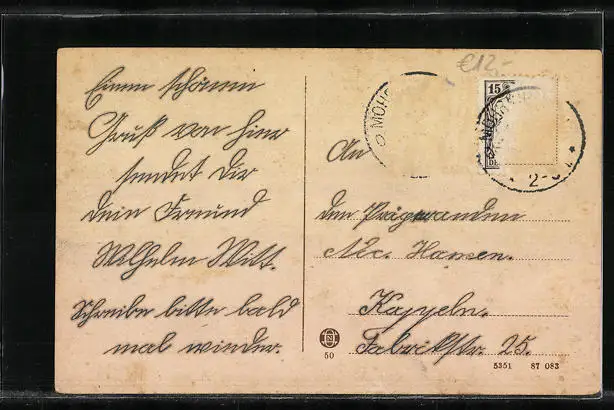 €12-
15
MOHR
2-3
Einen schönen
Gruß von hier
sendet Dir
dein Freund
Wilhelm Witt.
Schreibe bitte bald
mal wieder.
An
den Präparanden
Nic. Hansen.
Kappeln.
Fabrikstr. 25.
50
5351 87 083